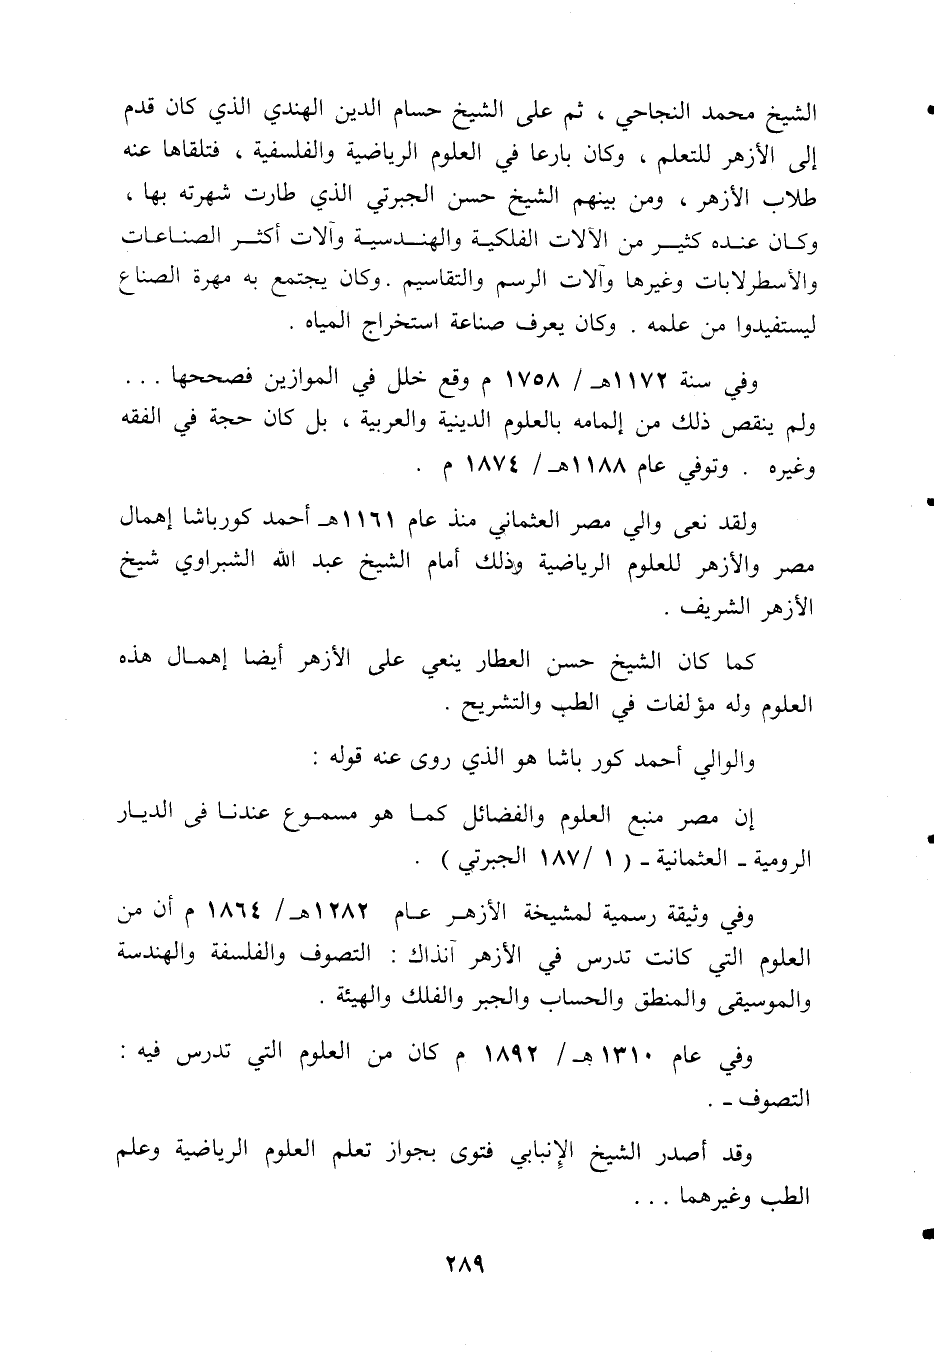 الشيخ محمد النجاحي ، ثم على الشيخ حسام الدين الهندي الذي كان قدم
إلى الأزهر للتعلم ، وكان بارعا في العلوم الرياضية والفلسفية ، فتلقاها عنه
طلاب الأزهر ، ومن بينهم الشيخ حسن الجبرتي الذي طارت شهرته بها ،
وكان عنده كثير من الآلات الفلكية والهندسية وآلات أكثر الصناعات
والأسطرلابات وغيرها وآلات الرسم والتقاسيم . وكان يجتمع به مهرة الصناع
ليستفيدوا من علمه . وكان يعرف صناعة استخراج المياه .
وفي سنة ١١٧٢هـ / ١٧٥٨ م وقع خلل في الموازين فصححها ...
ولم ينقص ذلك من إلمامه بالعلوم الدينية والعربية ، بل كان حجة في الفقه
وغيره . وتوفي عام ١١٨٨هـ / ١٨٧٤ م .
ولقد نعى والي مصر العثماني منذ عام ١١٦١هـ أحمد كورباشا إهمال
مصر والأزهر للعلوم الرياضية وذلك أمام الشيخ عبد الله الشبراوي شيخ
الأزهر الشريف .
كما كان الشيخ حسن العطار ينعي على الأزهر أيضا إهمال هذه
العلوم وله مؤلفات في الطب والتشريح .
والوالي أحمد كور باشا هو الذي روى عنه قوله :
إن مصر منبع العلوم والفضائل كما هو مسموع عندنا فى الديار
الرومية ـ العثمانية ـ ( ١ / ١٨٧ الجبرتي ) .
وفي وثيقة رسمية لمشيخة الأزهر عام ١٢٨٢هـ / ١٨٦٤ م أن من
العلوم التي كانت تدرس في الأزهر آنذاك : التصوف والفلسفة والهندسة
والموسيقى والمنطق والحساب والجبر والفلك والهيئة .
وفي عام ١٣١٠ هـ / ١٨٩٢ م كان من العلوم التي تدرس فيه :
التصوف ـ .
وقد أصدر الشيخ الإنبابي فتوى بجواز تعلم العلوم الرياضية وعلم
الطب وغيرهما ...
٢٨٩